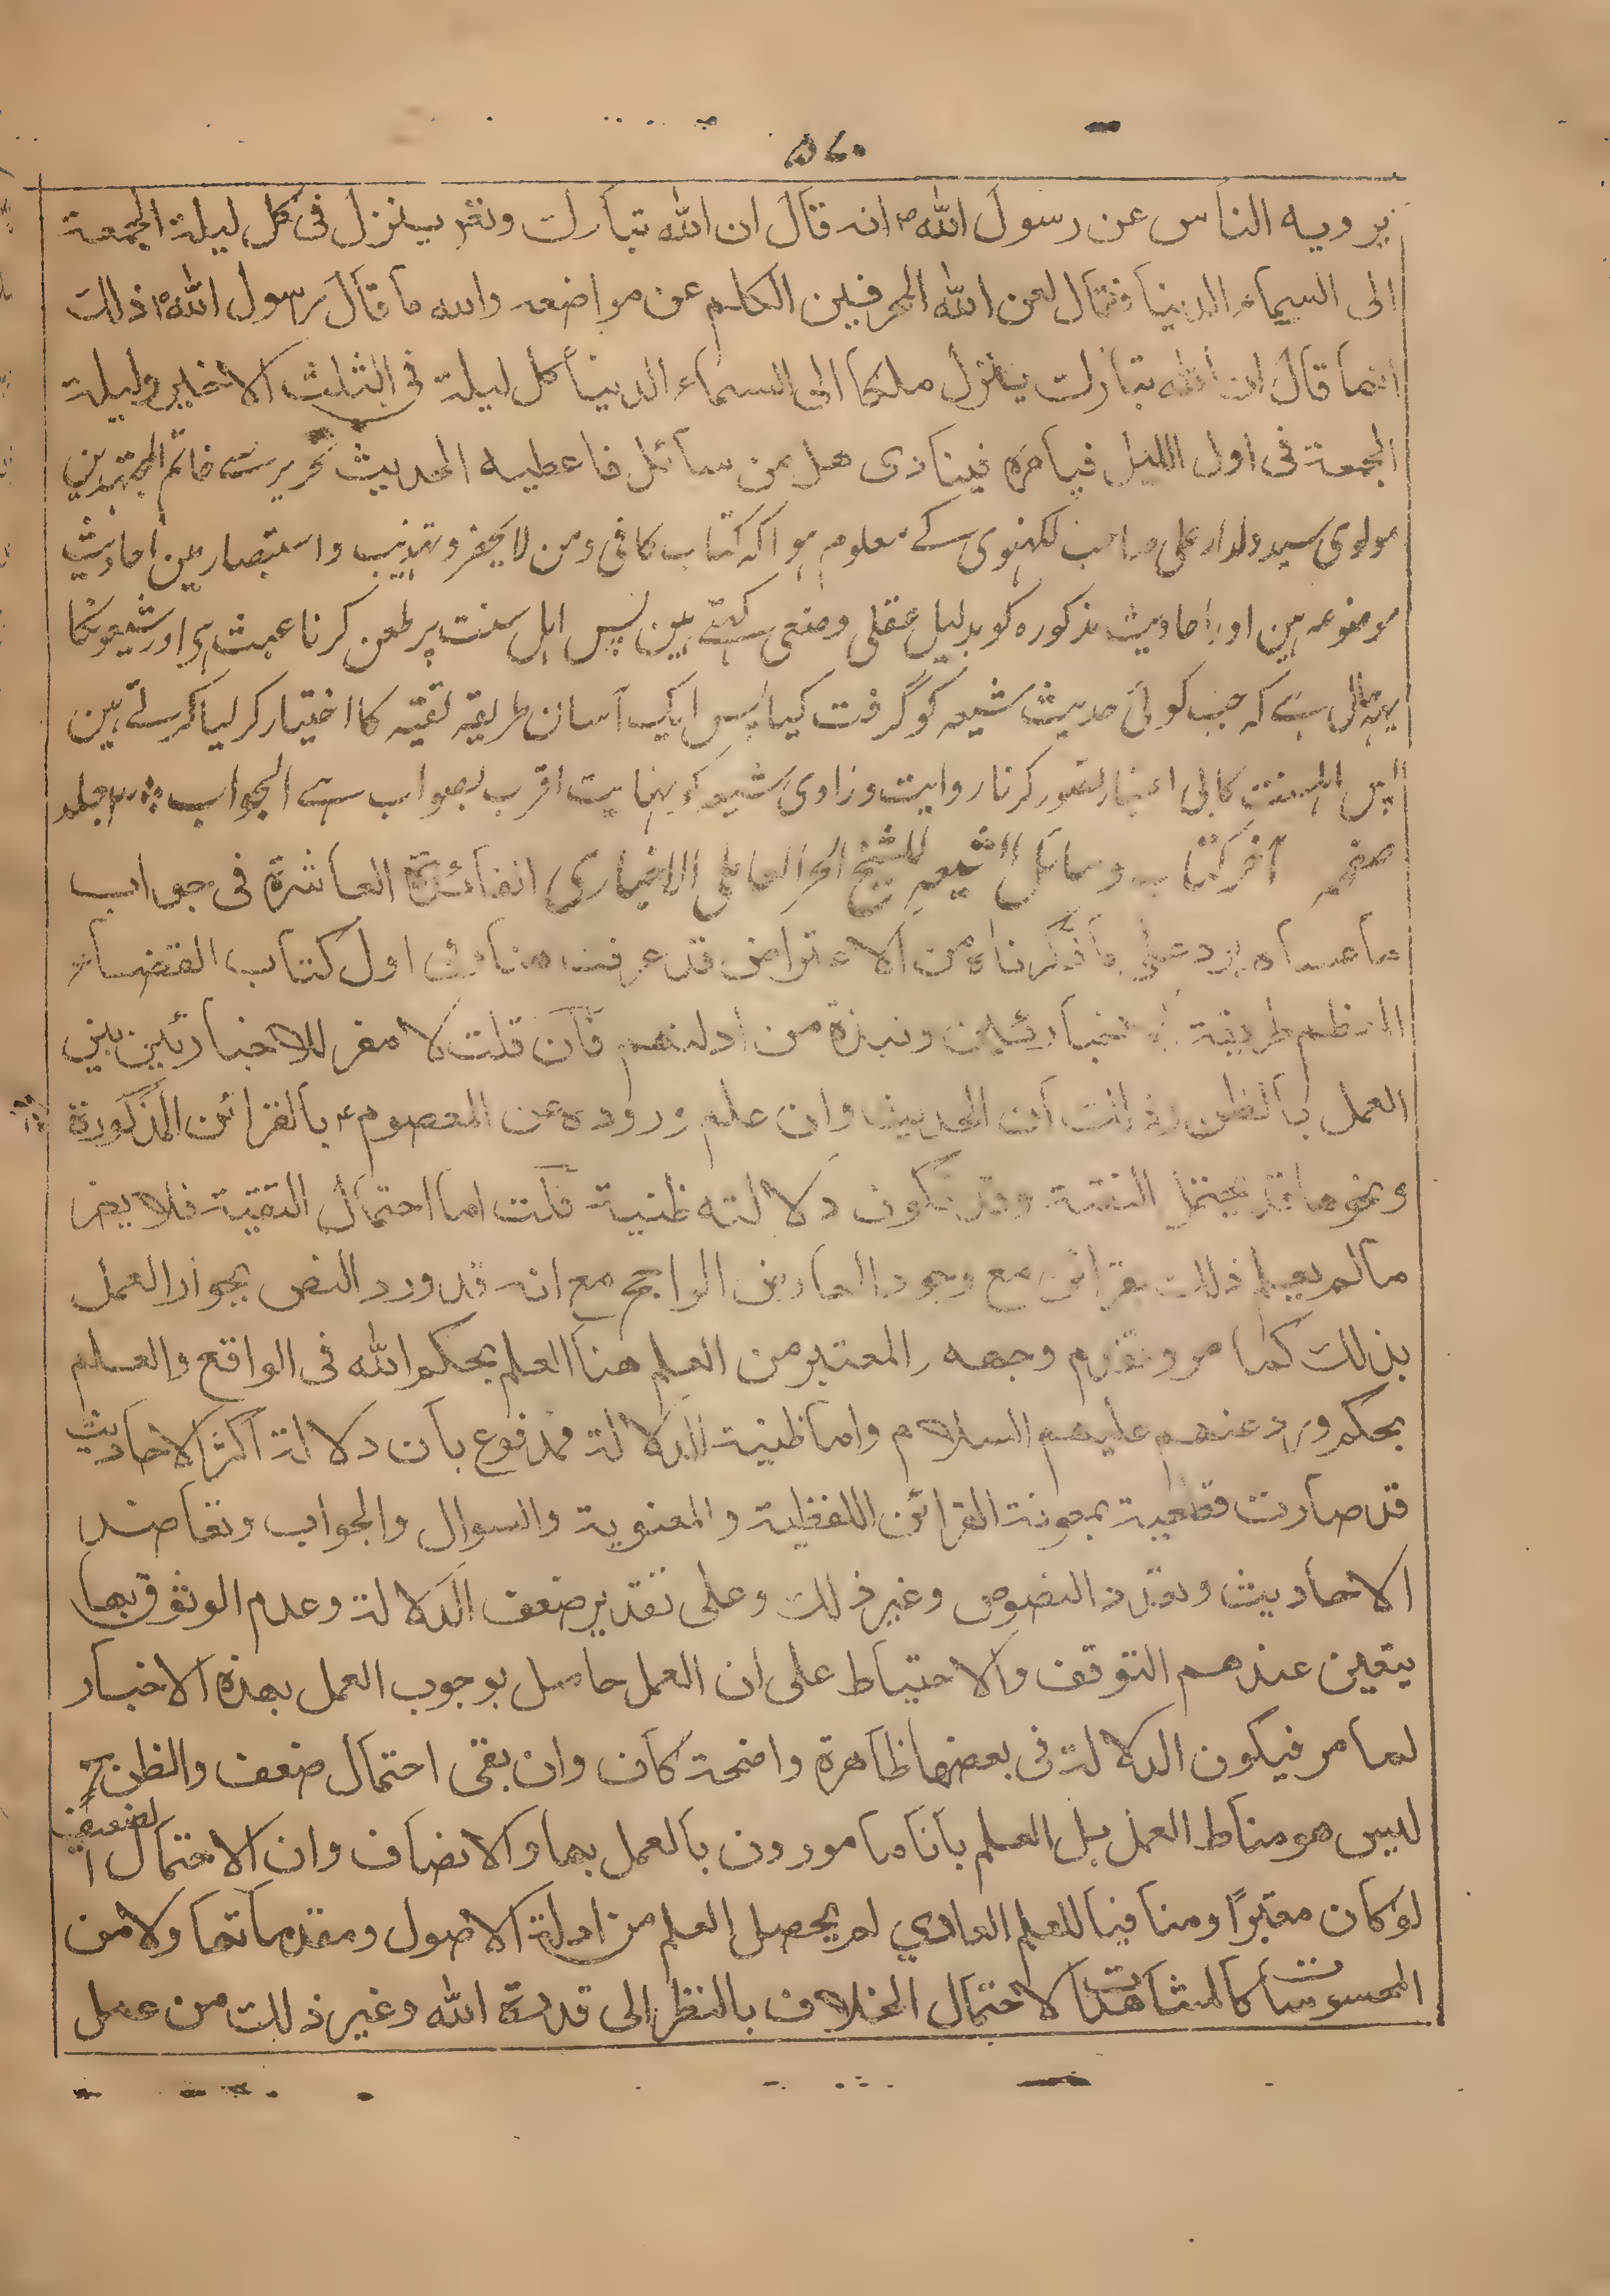 ۵۷۰
يرويه الناس عن رسول اللهص انه قال ان الله تبارك وتعالى ينزل فى كل ليلة الجمعة
الى السماء الدنيا فقال لعن الله المحرفين الكلم عن مواضعه والله ما قال رسول الله ذلك
انما قال ان الله تبارك ينزل ملكا الى السماء الدنيا كل ليلة فى الثلث الاخير وليلة
الجمعة فى اول الليل فيامره فينادى هل من سائل فاعطيه الحديث تحریر سے خاتم المجتهدین
مولوی سید دلدار علی صاحب لکہنوی کے معلوم ہوا کہ کتاب کافی ومن لا یحضر وتہذیب واستبصار مین احادیث
موضوعہ ہین اور احادیث مذکورہ کو بدلیل عقلی وضعی کہتے ہین پس اہل سنت پر طعن کرنا عبث ہی اور شیعونکا
یہہ حال ہے کہ جب کوئی حدیث شیعہ کو گرفت کیا پس ایک آسان طریقہ تقیہ کا اختیار کر لیا کرتے ہین
پس اہلسنت کا بی اعتبار تصور کرنا روایت وراوی شیعہ کو نہایت اقرب بصواب ہے الجواب ۳ جلد
صفحہ آخر کتاب وسائل الشیعہ للشیخ الحر العاملی الاخباری الفائدة العاشرة فى جواب
ما عساه يرد على ما ذكرناه من الاعتراض قد عرفت منا فى اول كتاب القضاء
طريقة الاخباريين ونبذة من ادلتهم فان قلت لا مفر للاخباريين بنى
العمل بالظن وذلك ان الحديث وان علم وروده عن المعصومع بالقرائن المذكورة
ونحوها قد يحتمل التقية وقد تكون دلالته ظنية قلت اما احتمال التقية فلا يضر
ما لم يعلم ذلك بقرائن مع وجود المعارض الراجح مع انه قد ورد النص بجواز العمل
بذلك كما مر وتقدم وجهه والمعتبر من العلم هنا العلم بحكم الله فى الواقع والعلم
بحكم ورد عنهم عليهم السلام واما ظنية الدلالة فمدفوع بان دلالة اكثر الاحاديث
قد صارت قطعية بمعونة القرائن اللفظية والمعنوية والسوال والجواب وتعاضد
الاحاديث وتعدد النصوص وغير ذلك وعلى تقدير ضعف الدلالة وعدم الوثوق بها
يتعين عندهم التوقف والاحتياط على ان العمل حاصل بوجوب العمل بهذه الاخبار
لما مر فيكون الدلالة فى بعضها ظاهرة واضحة كان وان بقى احتمال ضعف والظن ح
ليس هو مناط العمل بل العلم بانا مامورون بالعمل بها والانصاف وان الاحتمال الضعيف
لو كان معتبرًا ومنافيا للعلم العادي لم يحصل العلم من ادلة الاصول ومقدماتها ولا من
المحسوسات كالمشاهدات لاحتمال الخلاف بالنظر الى قدرة الله وغير ذلك من عمل